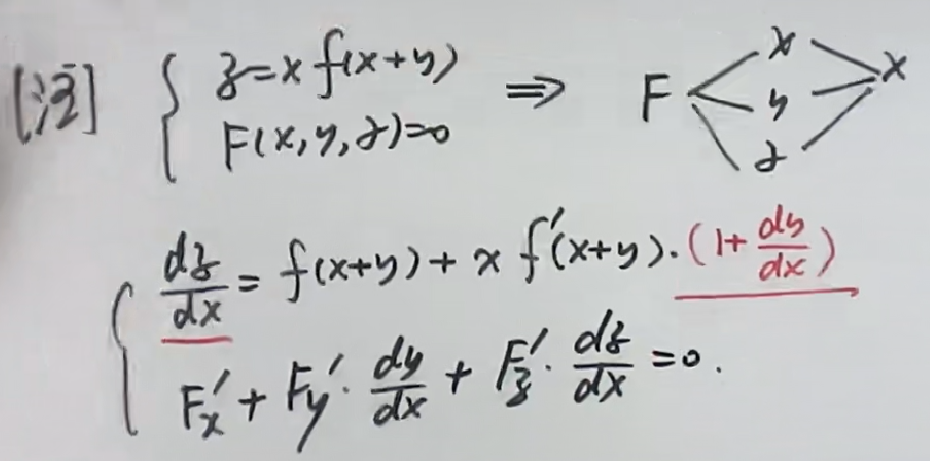 [注] { z=x f(x+y) ⇒ F x y z x
F(x,y,z)=0
{ dz/dx = f(x+y) + x f'(x+y)·(1+ dy/dx)
F'x + F'y · dy/dx + F'z · dz/dx =0.